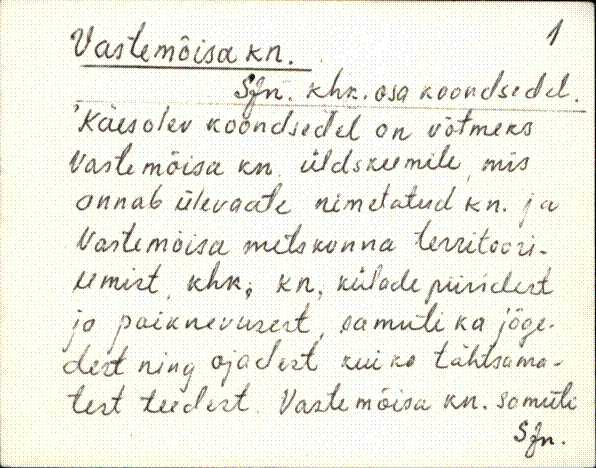 1
Vastemõisa kn.
Sjn. khk. osa koondsedel.
Käesolev koondsedel on võtmeks
Vastemõisa kn. üldskeemile, mis
annab ülevaate nimetatud kn. ja
Vastemõisa metskonna territoori-
umist, khk., kn., külade piiridest
ja paiknevusest, samuti ka jõge-
dest ning ojadest kui ka tähtsama-
test teedest. Vastemõisa kn. samuti
Sjn.